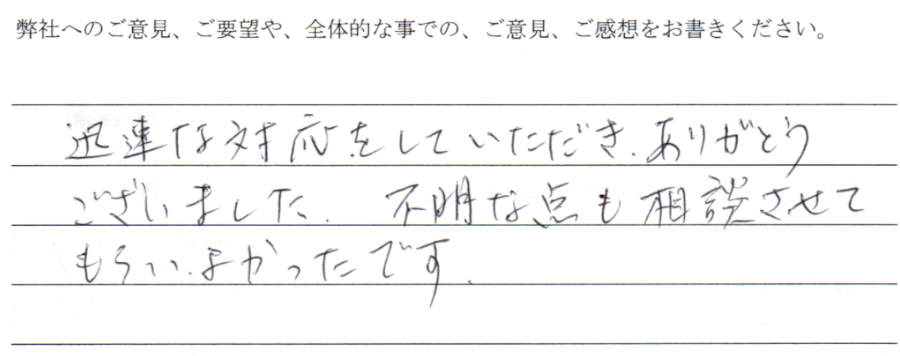 弊社へのご意見、ご要望や、全体的な事での、ご意見、ご感想をお書きください。
迅速な対応をしていただき、ありがとう
ございました。不明な点も相談させて
もらい、よかったです。